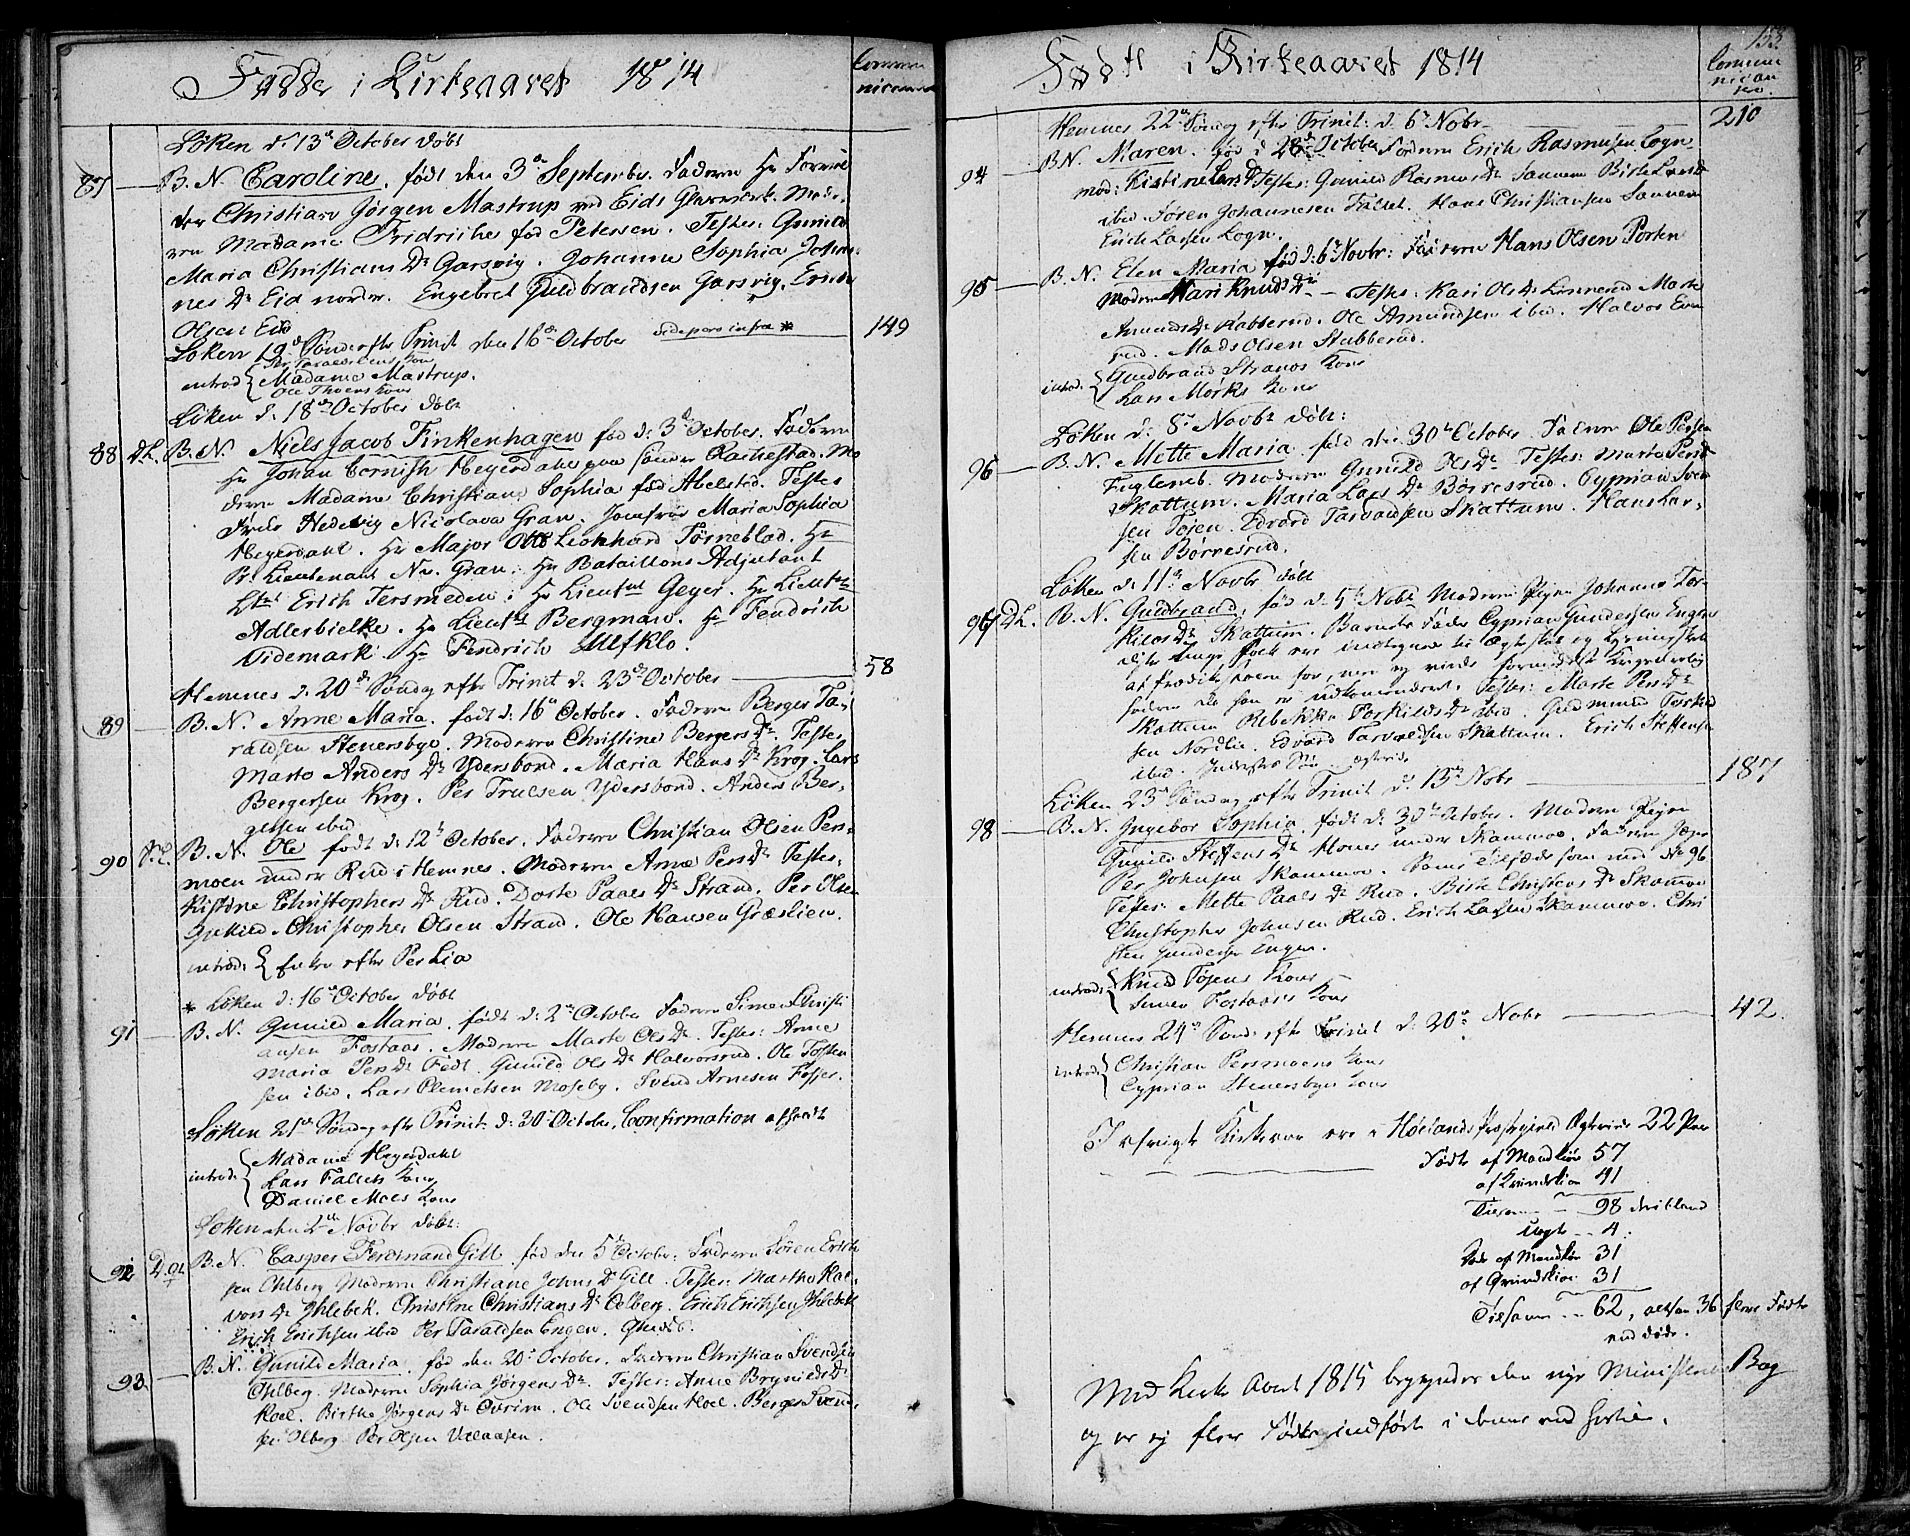 Fødde i Kirkeaaret 1814
Commu
nicanter
Løken d. 13de October døbt
87 B. N. Caroline. født den 3de September. Faderen Hr For
der Christian Jørgen Mastrup ved Eids Glasværk. Mode-
ren Madame Fridriche fød Petersen. Testes: Gunild
Maria Christians Dr Garsvig. Johanne Sophia Johan-
nes Dr Eid nordre. Engebret Guldbrandsen Garsvig. Erich
Olsen Eid
Løken 19de Sønd. efter Trinit. den 16de October vide paa infra * 149
introd
Madame Mastrup.
Ole Thoens Kone
Løken d. 18de October døbt
88 D.L. B. N. Niels Jacob Finkenhagen fød d. 3de October. Faderen
Hr Johan Cornish Heyerdahl paa søndre Rachestad. Mo-
deren Madame Christiane Sophia fød Abelsted. Testes
Hedevig Nicolava Gran. Jomfrue Maria Sophia
Heyerdahl. Hr Major Otto Leonhard Tørneblad. Hr
Pr. Lieutenant N. Gran. Hr Bataillons Adjutant
Ltnt Erich Tersmeden. Hr Lieutnt Geyer. Hr Lieutnt
Adlerbielke. Hr Lieutnt Bergman. Hr Fendrich
Tidemark. Hr Fendrich Ulfklo.
Hemnes d. 20de Søndag efter Trinit. d. 23de October 58
89 B. N. Anne Maria. født d. 16de October. Faderen Berger Ta-
raldsen Stenersbye. Moderen Christine Bergers Dr. Testes
Marte Anders Dr Ydersbond. Maria Hans Dr Krog. Lars
Bergersen Krog. Per Trulsen Ydersbond. Anders Ber-
gersen ibid
90 B. N. Ole født d. 12te October. Faderen Christian Olsen Pers-
moen under Rud i Hemnes. Moderen Anne Pers Dr Testes.
Kistine Christophers Dr Rud. Dorte Paals Dr Strand. Per Olsen
Christopher Olsen Strand. Ole Hansen Græslien.
introd: { Enken efter Per Lia
* Løken d: 16de October døbt
91 B. N. Gunild Maria. født d: 2de October Faderen Simen Christi
ansen Fostaas. Moderen Marte Ols Dr. Testes: Anne
Maria Pers Dr Fedt. Gunild Ols Dr Halvorsrud. Ole Tosten
sen ibid. Lars Clemetsen Moseby. Svend Arnesen Fosser.
Løken 21de Søndag efter Trinit. d: 30te October, Confirmation afholdt
introd
Madame Heyerdahl
Lars Fallets Kone
Daniel Moes Kone
Løken den 2de Novbr døbt:
92 B. N. Casper Ferdinand Gill. fød den 5te October. Faderen Søren Erich
sen Ohlberg Moderen Christiane Johns Dr Gill. Testes: Marthe Hal-
vors Dr Ihlebek. Christine Christians Dr Oelberg. Erich Erichsen Ihlebek
Erich Erichsen ibid Per Taraldsen Engen.
93. B. N. Gunild Maria. fød den 20de October. Faderen Christian Svendsen
Ohlberg. Moderen Sophia Jørgens Dr. Testes: Anne Brynilds Dr
Hoel. Birthe Jørgens Dr Ovrim. Ole Svendsen Hoel. Berger Svend
sen Olberg Per Olsen
Født i Kirkeaaret 1814
153.
Commu
nican
ter.
Hemnes 22de Søndag efter Trinit: d. 6te Nobr 210
94 B.N. Maren. fød d. 28de October Faderen Erich Rasmusen Logn
mod: Kistine Lars Dr Testes: Gunild Rasmus Dr Sannem Birte Lars Dr
ibid. Søren Johannesen Fallet. Hans Christiansen Sannem
Erich Larsen Logn.
95 B. N. Elen Maria fød d: 6te Novbr: Faderen Hans Olsen Porten
Moderen Kari Knuds Dr Testes: Kari Ols Dr Linnerud Marte
Amunds Dr Kabberud. Ole Amundsen ibid. Halvor Even
rud. Mads Olsen Stubberud.
introd.
Guldbrand Strands Kone
Lars Mørks Kone
Løken d. 8de Novbr døbt:
96 B. N. Mette Maria. fød den 30te October Faderen Ole Persen
Fuglend. Moderen Gunild Ols Dr Testes: Marte Pers Dr
Skattum. Maria Lars Dr Børresrud. Cyprian Svend
sen Tøien. Edvard Tarvaldsen Skattum. Hans Lar-
sen Børresrud.
Løken d 11te Novbr døbt
97 D.L. B. N. Guldbrand. fød d. 5te Nobr Moderen Pigen Johanne Tor-
kilds Dr Skattum. Barnets Fader Cyprian Gundersen Engen
disse unge Folk ere
Testes: Marte Pers Dr
Skattum Rebekka Torkilds Dr ibid. Gudmund Torkild
sen Nordlie. Edvard Tarvaldsen Skattum. Erich Steffensen
ibid.
Løken 23de Søndag efter Trinit d. 13de Nobr 187
98 B. N. Ingebor Sophia. født d: 30te October. Moderen Pigen
Gunild Steffens Dr Hones under Skammoe. Faderen Jæger
Per Johnsen Skammoe. No 96
Testes: Mette Paals Dr Rud. Birte Christens Dr Skamoe
Christopher Johnsen Rud. Erich Larsen Skammoe. Chri
sten Gunderse Engen.
introd:
Knud Tøiens Kone
Simen Fostaas's Kone
Hemnes 24de Sønd. efter Trinit d: 20de Nobr 42.
introd:
Christian Persmoens Kone
Cyprian Stenersbyes Kone
I Kirkeaar ere i Hølands Præstegield Ægteviede 22 Par
Fødte af Mandkiøn 57
af Kvindekiøn 41
Tilsam -- 98
uægte -- 4.
Døde af Mandkiøn 31
af Qvindekiøn 31
Tilsam --- 62, altsaa 36 flere Fødte
end døde.
Med Kirke Aaret 1815 begynder den nye Ministerial Bog
og er ej flere Fødte indført i denne